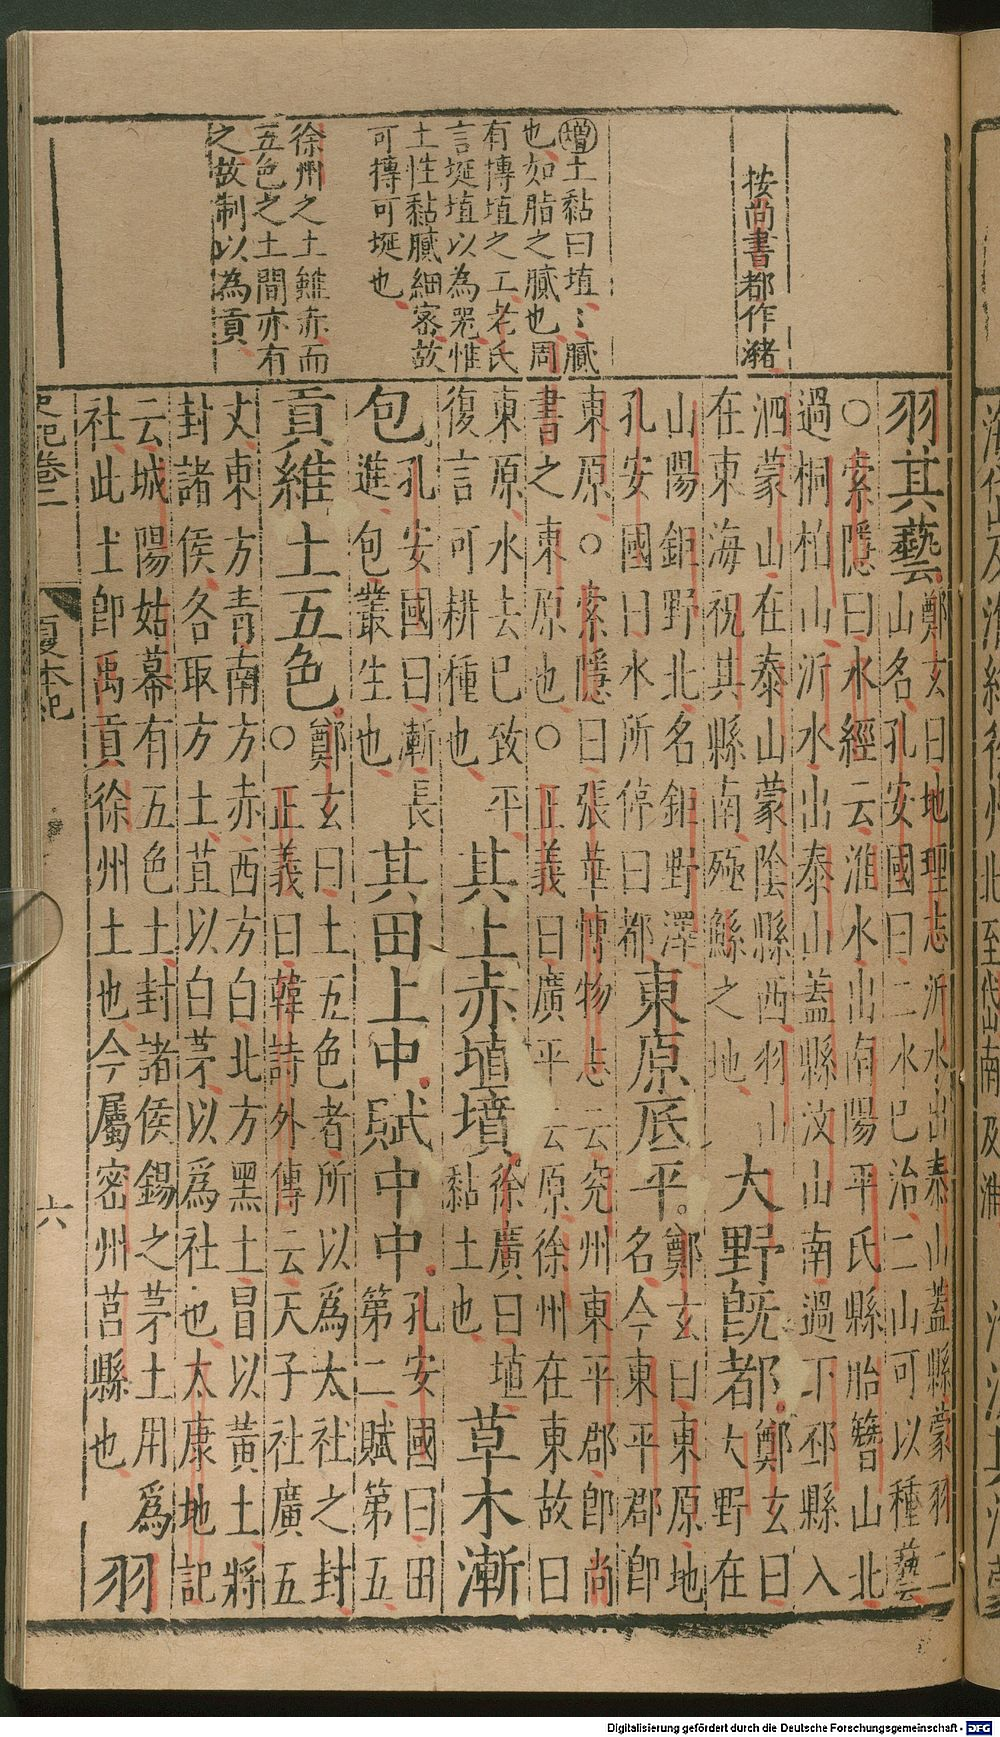 按尚書都作瀦
增土黏曰埴〻膩
也如脂之膩也周
有摶埴之工老氏
言埏埴以為噐惟
土性黏膩細密故
可摶可埏也
徐州之土雖赤而
五色之土間亦有
之故制以為貢
羽其藝鄭玄曰地理志沂水出泰山蓋縣蒙羽二
山名孔安國曰二水已治二山可以種藝
○索隱曰水經云淮水出南陽平氏縣胎簪山北
過桐柏山沂水出泰山蓋縣艾山南過下邳縣入
泗蒙山在泰山蒙陰縣西羽山
在東海祝其縣南殛鯀之地
大野旣都鄭玄曰
大野在
山陽鉅野北名鉅野澤
孔安國曰水所停曰都
東原底平鄭玄曰東原地
名今東平郡卽
東原○索隱曰張華博物志云兖州東平郡卽尚
書之東原也○正義曰廣平云原徐州在東故曰
東原水去已致平
復言可耕種也
其土赤埴墳徐廣曰埴
黏土也
草木漸
包孔安國曰漸長
進包叢生也
其田上中賦中中孔安國曰田
第二賦第五
貢維土五色鄭玄曰土五色者所以爲太社之封
○正義曰韓詩外傳云天子社廣五
丈東方青南方赤西方白北方黑土冒以黃土將
封諸侯各取方土苴以白茅以爲社也太康地記
云城陽姑幕有五色土封諸侯錫之茅土用爲
社此土卽禹貢徐州土也今屬密州莒縣也
羽
史記卷二
夏本紀
六
Digitalisierung gefördert durch die Deutsche Forschungsgemeinschaft - DFG